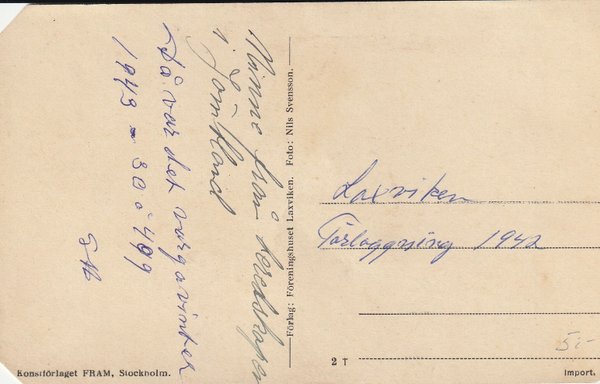 Minne från beredskapen
i Jämtland
Då var det vargavinter
1943 - 30 à 40 g
Förlag: Föreningshuset Laxviken. Foto: Nils Svensson.
Laxviken
Förläggning 1942
5:-
2 T
Konstförlaget FRAM, Stockholm.
Import.